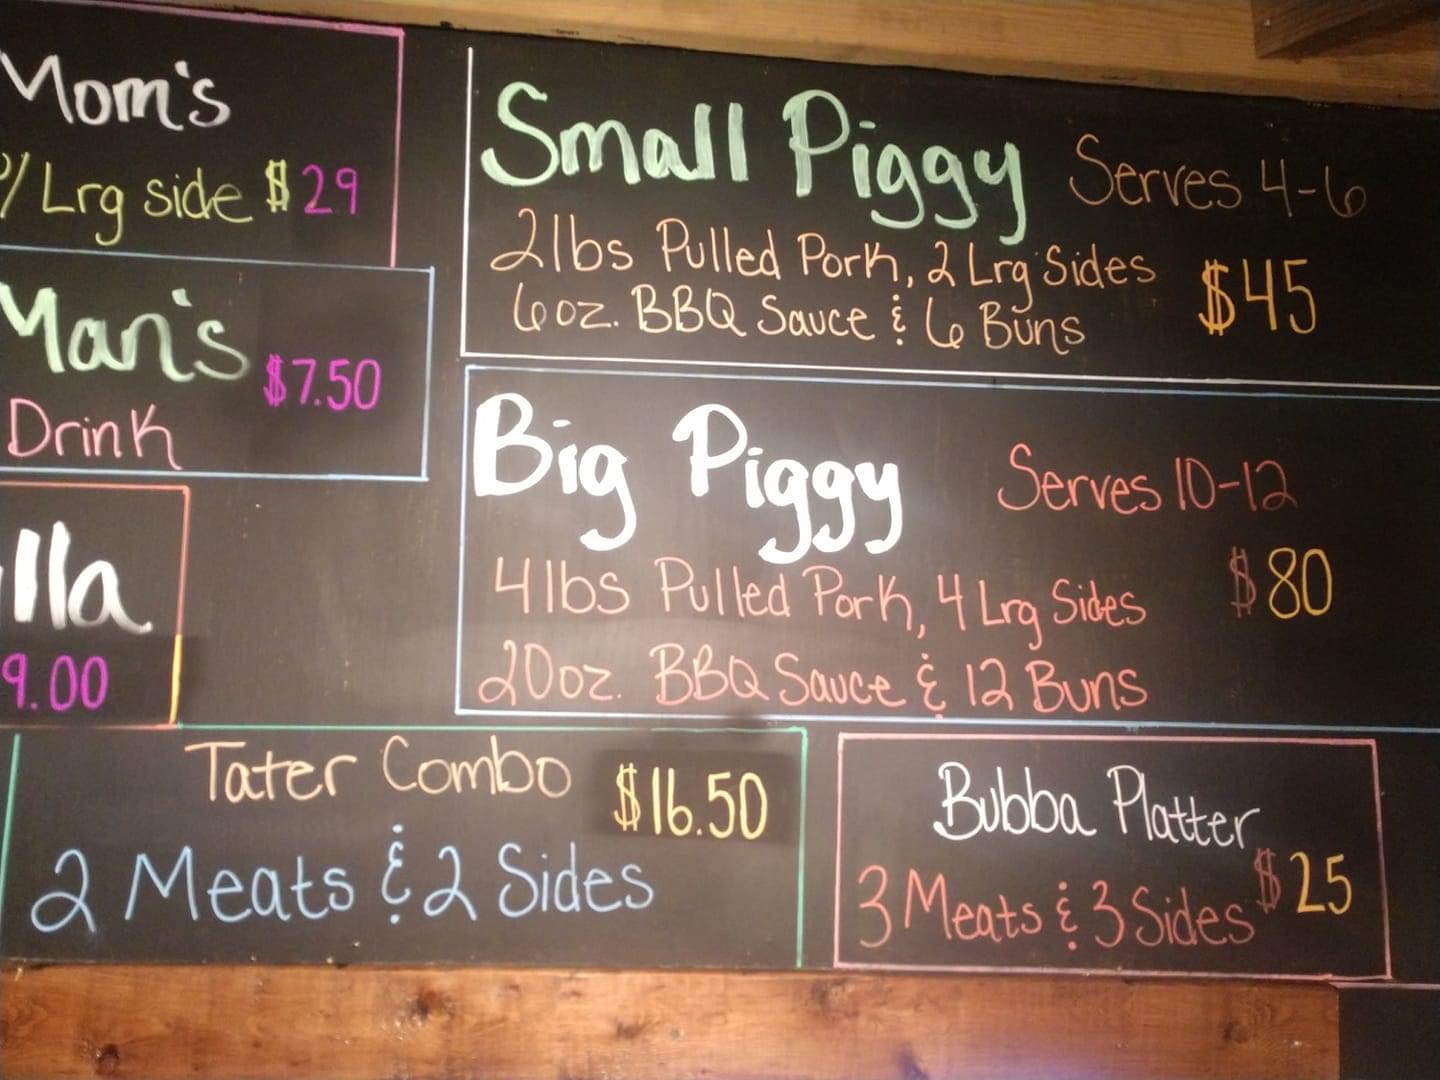 Mom's
Lrg side $29
Man's
$7.50
Drink
lla
9.00
Small Piggy Serves 4-6
2lbs Pulled Pork, 2 Lrg Sides
6oz. BBQ Sauce & 6 Buns
$45
Big Piggy
Serves 10-12
4lbs Pulled Pork, 4 Lrg Sides
$80
20oz. BBQ Sauce & 12 Buns
Tater Combo $16.50
2 Meats & 2 Sides
Bubba Platter
3 Meats & 3 Sides $25